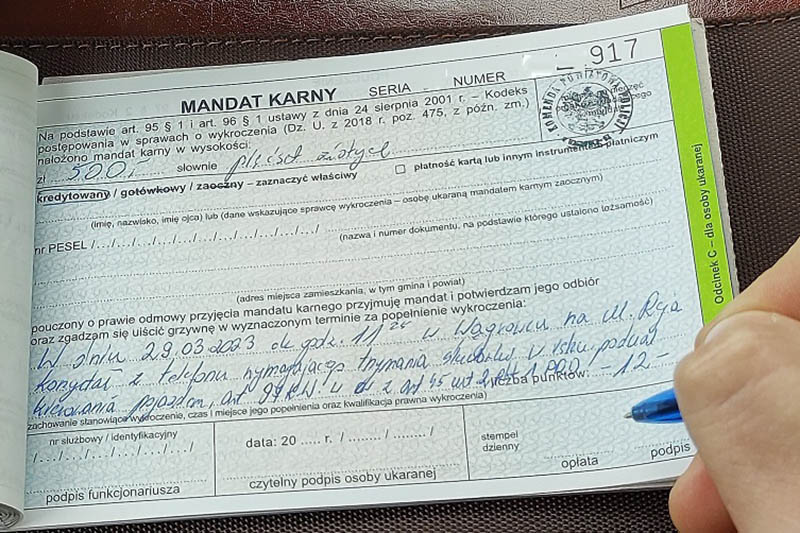 917
MANDAT KARNY SERIA NUMER
Na podstawie art. 95 § 1 i art. 96 § 1 ustawy z dnia 24 sierpnia 2001 r. – Kodeks
postępowania w sprawach o wykroczenia (Dz. U. z 2018 r. poz. 475, z późn. zm.)
nałożono mandat karny w wysokości:
KOMENDA POWIATOWA POLICJI
zł 500,- słownie pięćset złotych
kredytowany / gotówkowy / zaoczny – zaznaczyć właściwy
płatność kartą lub innym instrumentem płatniczym
(imię, nazwisko, imię ojca) lub (dane wskazujące sprawcę wykroczenia – osobę ukaraną mandatem karnym zaocznym)
nr PESEL
(nazwa i numer dokumentu, na podstawie którego ustalono tożsamość)
(adres miejsca zamieszkania, w tym gmina i powiat)
pouczony o prawie odmowy przyjęcia mandatu karnego przyjmuję mandat i potwierdzam jego odbiór
oraz zgadzam się uiścić grzywnę w wyznaczonym terminie za popełnienie wykroczenia:
W dniu 29.03.2023 ok godz. 11 w Wągrowcu na ul. Reja
korzystał z telefonu wymagającego trzymania słuchawki w czasie
kierowania pojazdem, art 97 KW
liczba punktów: -12-
zachowanie stanowiące wykroczenie, czas i miejsce jego popełnienia oraz kwalifikacja prawna wykroczenia)
nr służbowy / identyfikacyjny
podpis funkcjonariusza
data: 20 ..... r. / ....... / ....... /
czytelny podpis osoby ukaranej
stempel
dzienny
opłata podpis
Odcinek C – dla osoby ukaranej